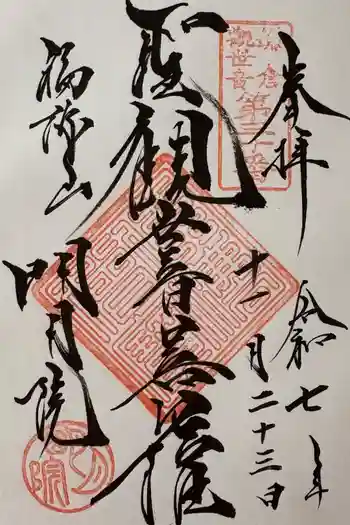 奉拝
令和七年
十一月二十三日
聖観世音菩薩
福源山
明月院
鎌倉
観世音
第三十番
明月院